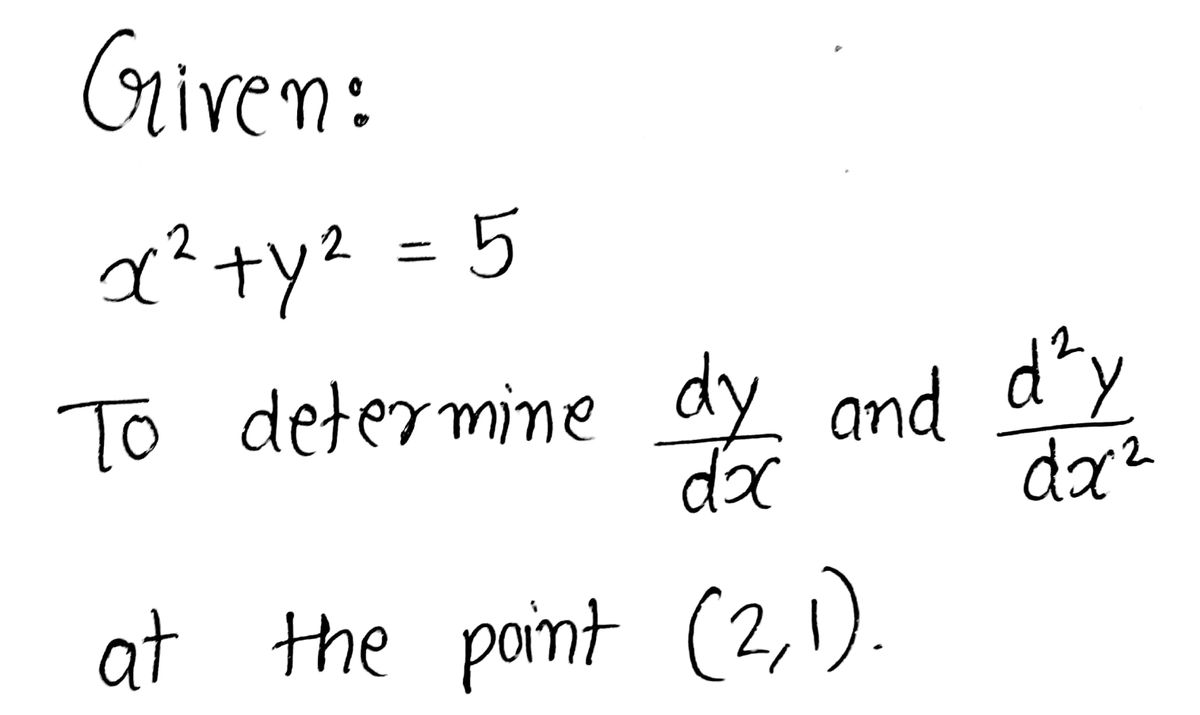 Given:
x² + y² = 5
To determine dy/dx and d²y/dx²
at the point (2,1).